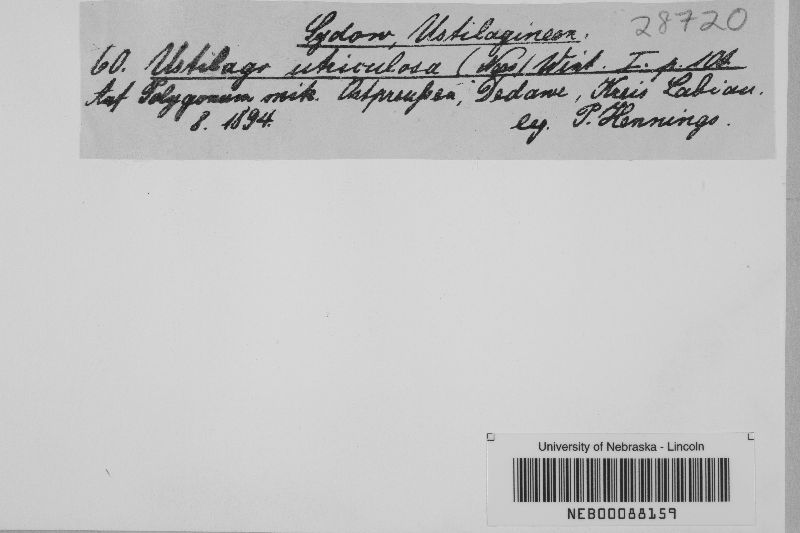 Sydow, Ustilagineen. 28720
60. Ustilago utriculosa (Nees) Wint. I. p. 101
Auf Polygonum mik. Ostpreußen, Dedawe, Kreis Labiau.
8. 1894. leg. P. Hennings.
University of Nebraska - Lincoln
NEB00088159